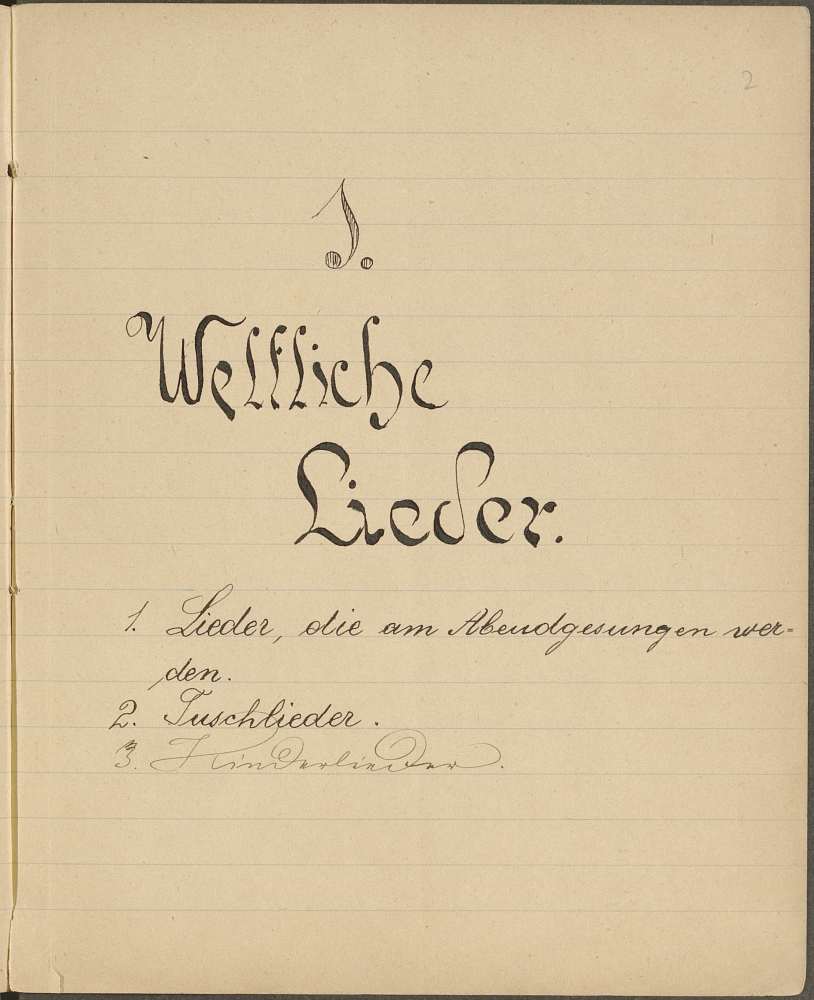 2
I.
Weltliche
Lieder.
1. Lieder, die am Abendgesungen wer=
den.
2. Tuschlieder.
3. Kinderlieder.